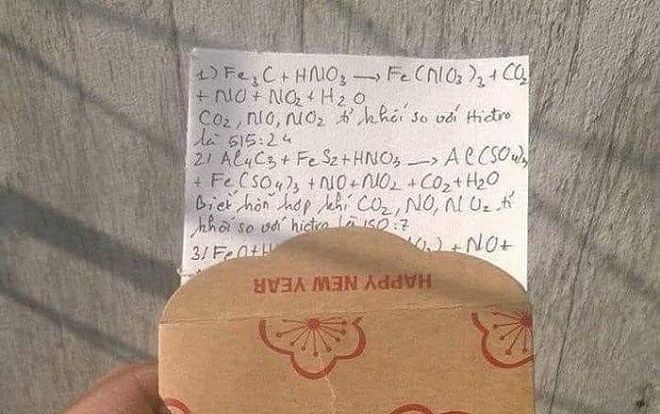 1) Fe3C + HNO3 → Fe(NO3)3 + CO2
+ NO + NO2 + H2O
CO2, NO, NO2 tỉ khối so với Hiđro
là 515:24
2) Al4C3 + FeS2 + HNO3 → Al(SO4)3
+ Fe(SO4)3 + NO + NO2 + CO2 + H2O
Biết hỗn hợp khí CO2, NO, NO2 tỉ
khối so với hiđro là 150:7
3) FeO + H
+ NO +
HAPPY NEW YEAR